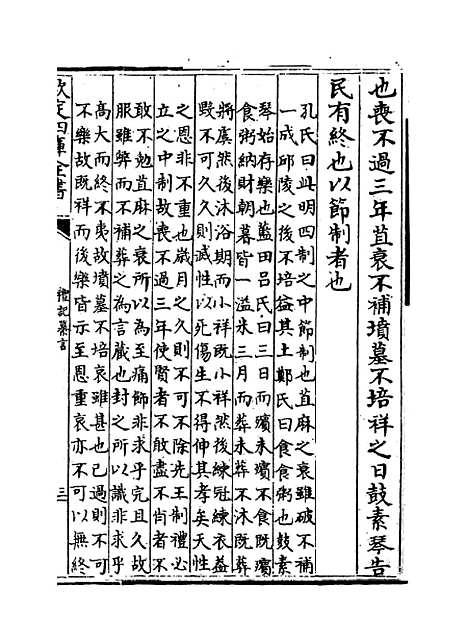 也喪不過三年苴衰不補墳墓不培祥之日鼓素琴告
民有終也以節制者也
孔氏曰此明四制之中節制也苴麻之衰雖破不補
一成邱陵之後不培益其土鄭氏曰食食粥也鼓素
琴始存樂也藍田吕氏曰三日而殯未殯不食既殯
食粥納財朝暮皆一溢米三月而葬未葬不沐既葬
將虞然後沐浴期而小祥既小祥然後練冠練衣葢
毀不可久久則滅性以死傷生不得伸其孝矣天性
之恩非不重也歲月之久則不可不除先王制禮必
立之中制故喪不過三年使賢者不敢盡不肖者不
敢不勉苴麻之衰所以為至痛飾非求乎完且久故
服雖弊而不補葬之為言藏也封之所以識非求乎
高大而終不夷故墳墓不培哀雖甚也已過則不可
不樂故既祥而後樂皆示至恩重哀亦不可以無終
欽定四庫全書
禮記纂言
三